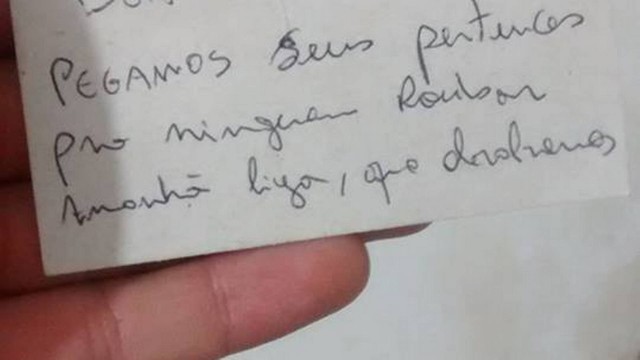 PEGAMOS seus pertences
pro ninguem Roubar
Amanhã liga, que devolvemos